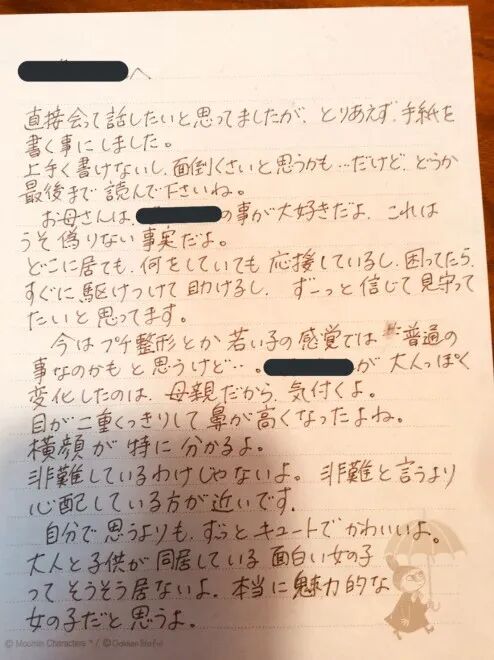 へ
直接会って話したいと思ってましたが、とりあえず、手紙を
書く事にしました。
上手く書けないし、面倒くさいと思うかも…だけど、どうか
最後まで読んで下さいね。
お母さんは、の事が大好きだよ、これは
うそ偽りない事実だよ。
どこに居ても、何をしていても応援しているし、困ってたら、
すぐに駆けつけて助けるし、ずーっと信じて見守って
たいと思ってます。
今はプチ整形とか若い子の感覚では普通の
事なのかもと思うけど…。が大人っぽく
変化したのは、母親だから、気付くよ。
目が二重くっきりして鼻が高くなったよね。
横顔が特に分かるよ。
非難しているわけじゃないよ。非難と言うより
心配している方が近いです。
自分で思うよりも、ずっとキュートでかわいいよ。
大人と子供が同居している面白い女の子
ってそうそう居ないよ、本当に魅力的な
女の子だと思うよ。
© Moomin Characters ™ /